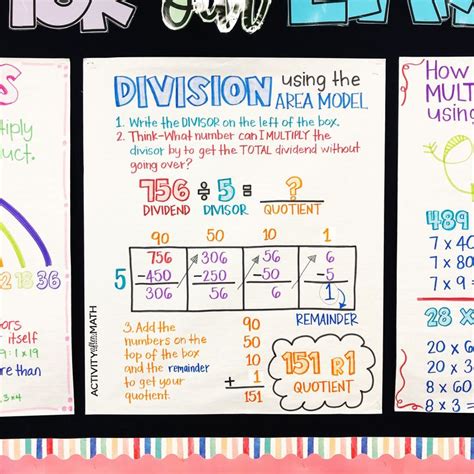 DIVISION using the
AREA MODEL
1. Write the DIVISOR on the left of the box.
2. Think-What number can I MULTIPLY the
divisor by to get the TOTAL dividend without
going over?
756 ÷ 5 = ?
DIVIDEND DIVISOR QUOTIENT
90 50 10 1
5
756 306 56 6
-450 -250 -50 -5
306 56 6 1
REMAINDER
3. Add the
numbers on the
top of the box
and the remainder
to get your
quotient.
90
50
10
+ 1
151
151 R1
QUOTIENT
ACTIVITY after MATH
S
tiply
duct.
12 18 36
ors
itself
9: 1 x 19
re than
3 x 4
How
MULT
using
489
7 x 40
7 x 80
7 x 9 =
28 x
20 x 6
20 x 3
8 x 60
8 x 3 =